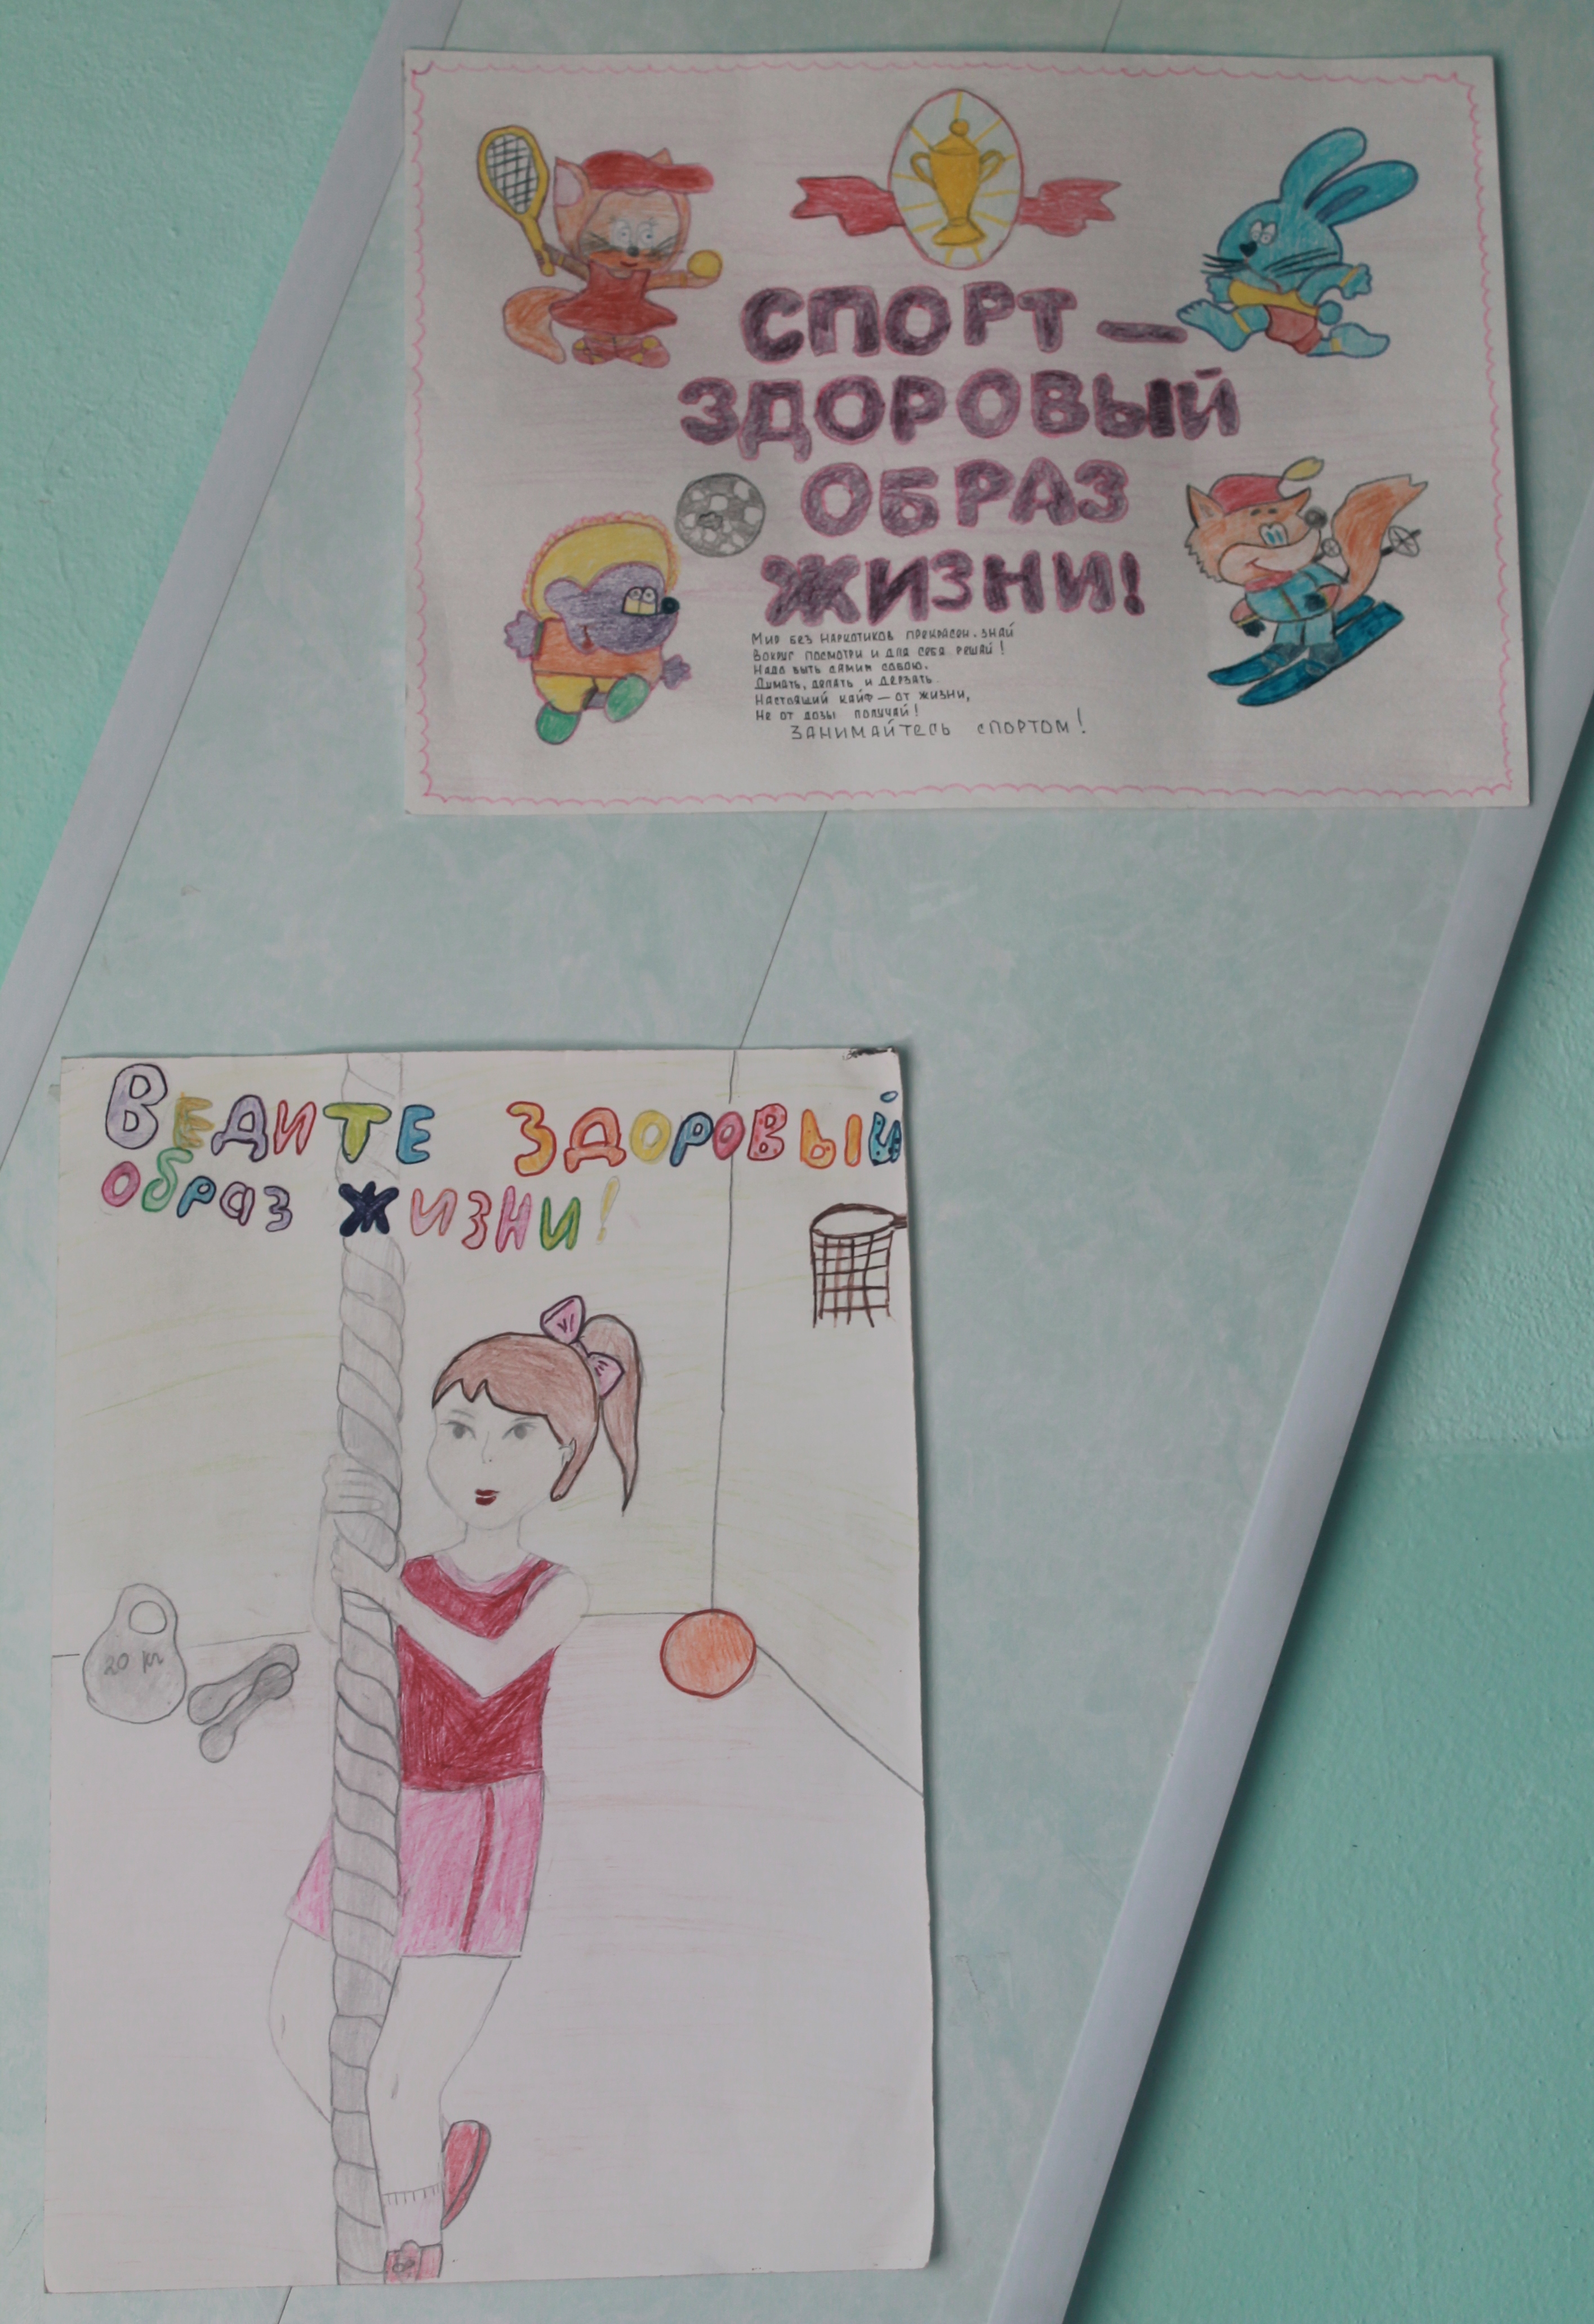 СПОРТ —
ЗДОРОВЫЙ
ОБРАЗ
ЖИЗНИ!
Мир без наркотиков прекрасен. Знай
Вокруг посмотри и для себя решай!
Надо быть самим собою.
Думать, делать и дерзать.
Настоящий кайф — от жизни,
Не от дозы получай!
ЗАНИМАЙТЕСЬ СПОРТОМ!
ВЕДИТЕ ЗДОРОВЫЙ
ОБРАЗ ЖИЗНИ!
20 кг